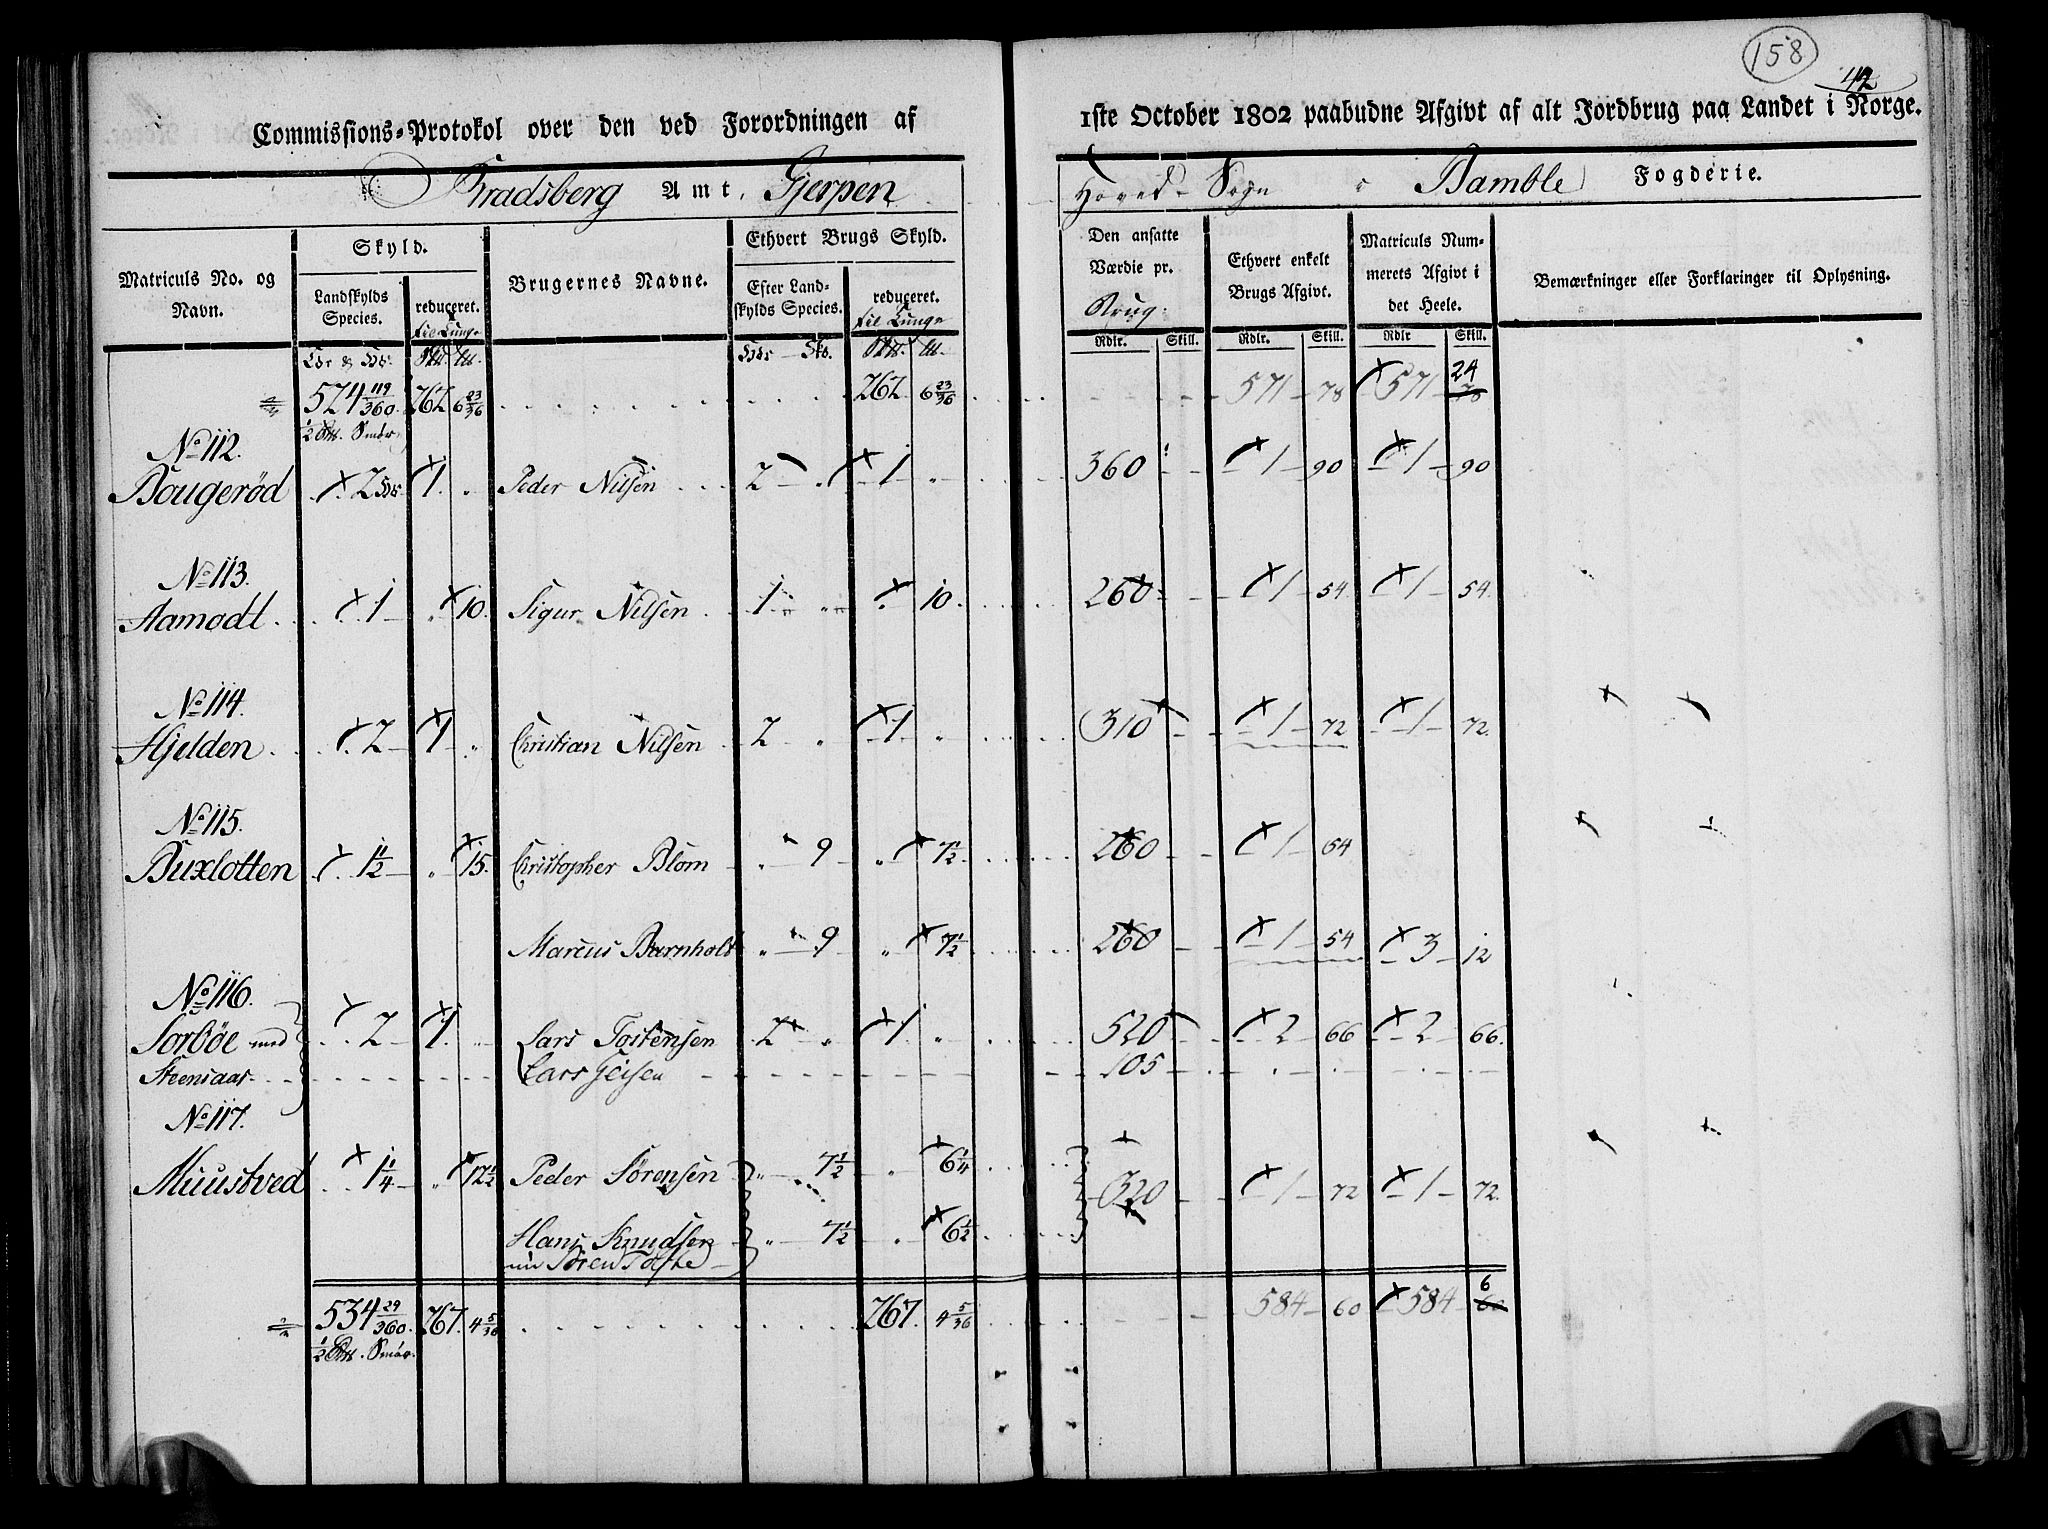 158
42
Commissions-Protokol over den ved Forordningen af 1ste October 1802 paabudne Afgivt af alt Jordbrug paa Landet i Norge.
Bradsberg Amt, Gjerpen Hoved-Sogn i Bamble Fogderie.
Matriculs No. og Navn.
Skyld.
Landskylds Species.
reduceret. til Tunge
Brugernes Navne.
Ethvert Brugs Skyld.
Efter Landskylds Species.
reduceret. til Tunge
Den ansatte Værdie pr. Brug.
Ethvert enkelt Brugs Afgivt.
Matriculs Nummerets Afgivt i det Heele.
Bemærkninger eller Forklaringer til Oplysning.
Rdlr. Skill. Rdlr. Skill. Rdlr Skill.
524 119/360 262 6 23/36 262 6 23/36 571 78 571 24 78
1/2 Smør
No 112.
Bougerød 2 1 " Peder Nilsen 2 1 " 360 1 90 1 90
No 113.
Aamodt 1 " 10. Sigur Nilsen 1 " " 10. 260 1 54 1 54
No 114.
Hjelden 2 1 " Christian Nilsen 2 " 1 " 310 1 72 1 72
No 115.
Buxlotten 1 1/2 " 15. Christopher Blom " 9 " 7 1/2 260 1 54
Marcus Barnholt " 9 " 7 1/2 260 1 54 3 12
No 116.
Sorbøe med 2 1 " Lars Tostensen 2 " 1 " 520 2 66 2 66
Steensaas Lars 105
No 117.
Muustved 1 1/4 " 12 1/2 Peder Sörensen " 7 1/2 " 6 1/4 320 1 72 1 72
Hans Knudsen " 7 1/2 " 6 1/2
nu Sören Tofte
534 29/360 267. 4 5/36 267. 4 5/36 584 60 584 6 60
1/2 Smør.